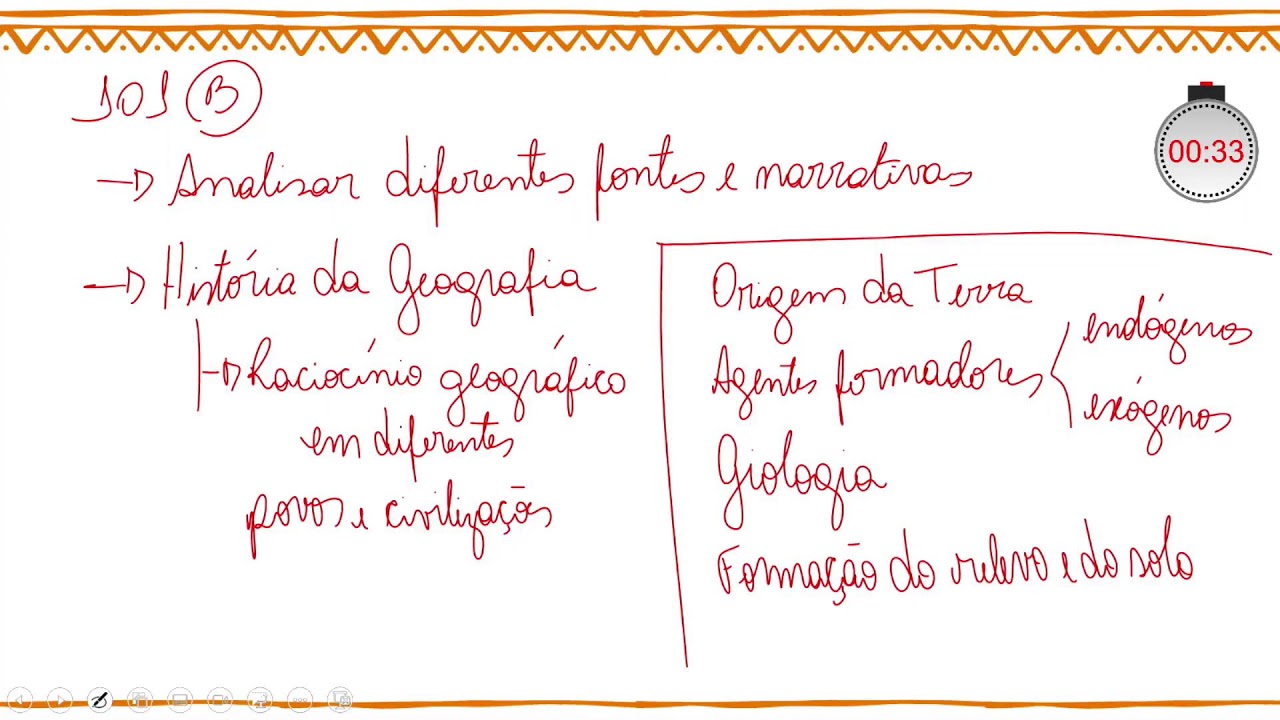 101 B
→ Analisar diferentes fontes e narrativas
→ História da Geografia
→ Raciocínio geográfico
em diferentes
povos e civilizações
Origem da Terra
Agentes formadores
endógenos
exógenos
Geologia
Formação do relevo e do solo
00:33